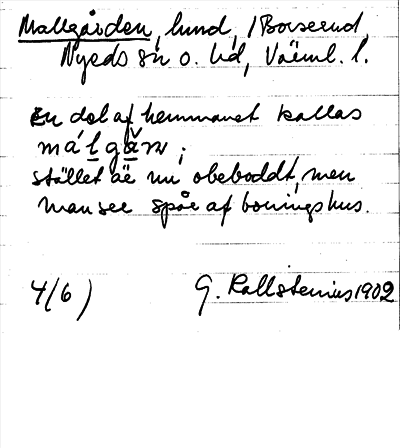 Mallgården, lund, i Borserud,
Nyeds sn o. hd, Värml. l.
En del af hemmanet kallas
málgǎɳ;
stället är nu obebodt, men
man ser spår af boningshus.
4/6) G. Kallstenius 1902